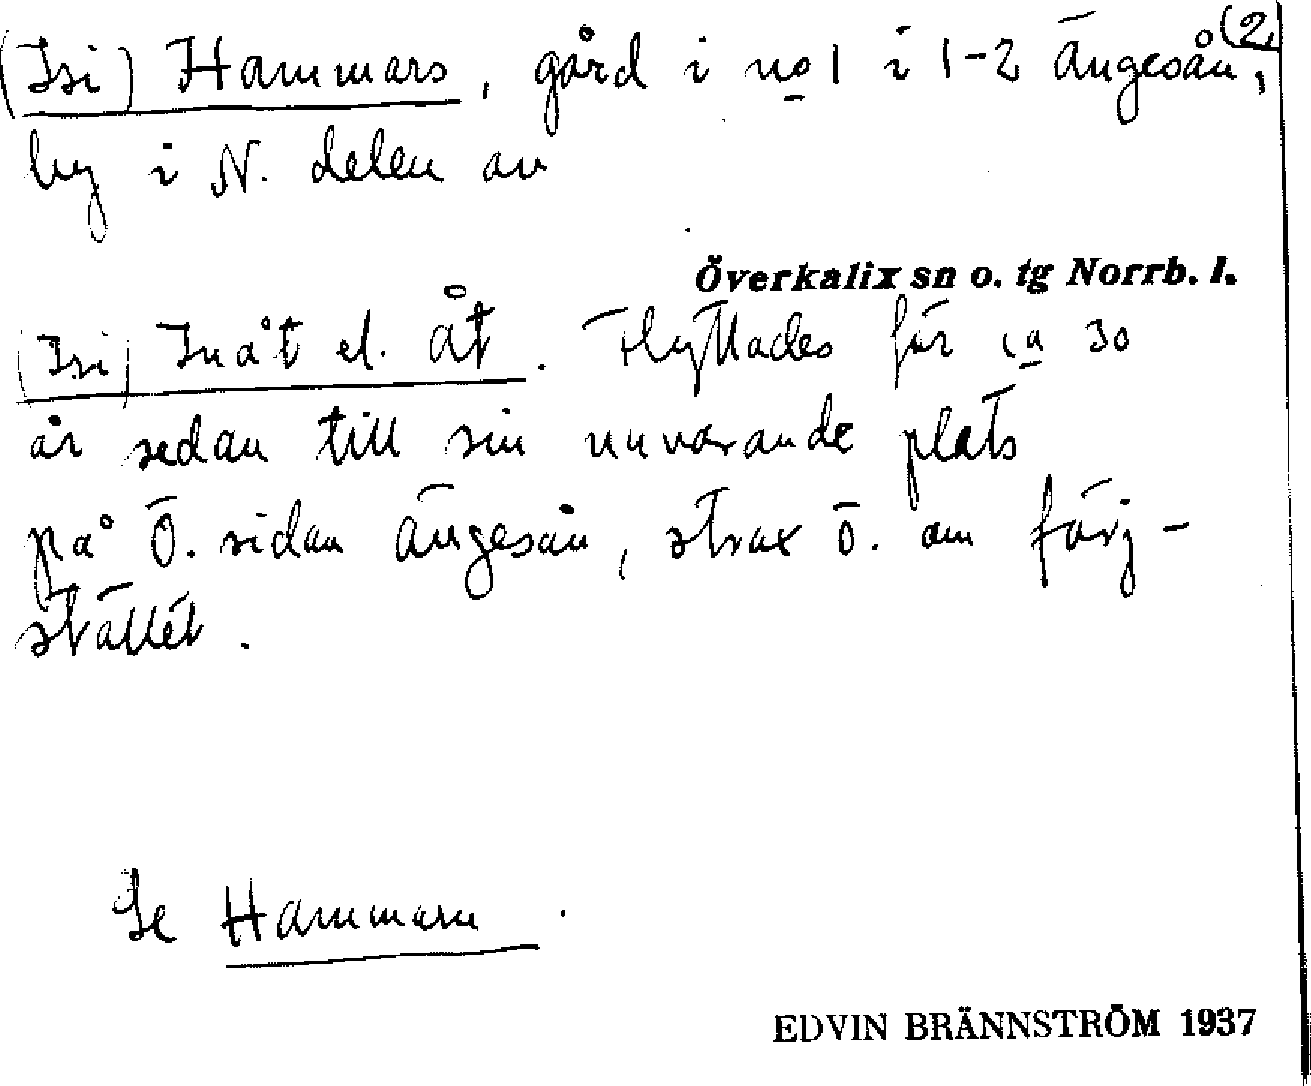 (2,
(Isi) Hammars, gård i no 1 i 1-2 Ängesån,
by i N. delen av
Överkalix sn o. tg Norrb. l.
(Isi) Inåt el. Åt. Flyttades för ca 30
år sedan till sin nuvarande plats
på Ö. sidan Ängesån, strax Ö. om färj-
stället.
Se Hammarn.
EDVIN BRÄNNSTRÖM 1937